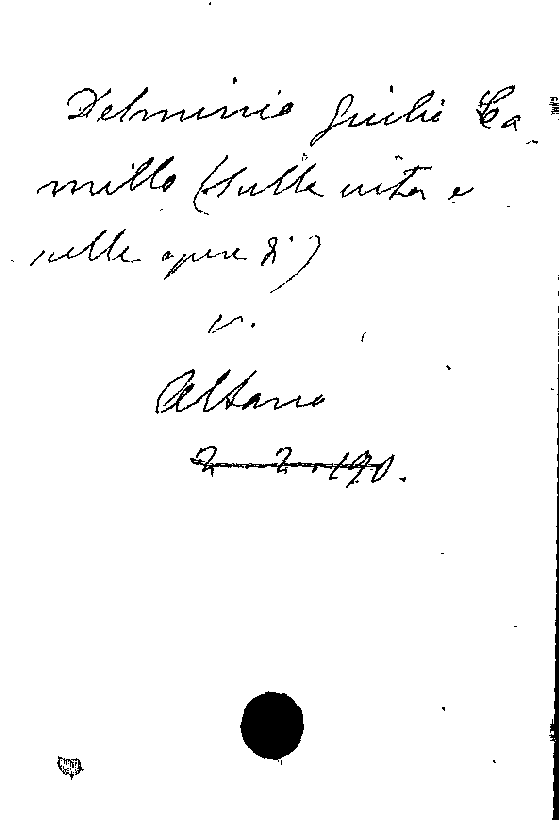 Delminio Giulio Ca-
millo (sulla vita e
sulle opere di)
v.
Altano
2. 2. 190.